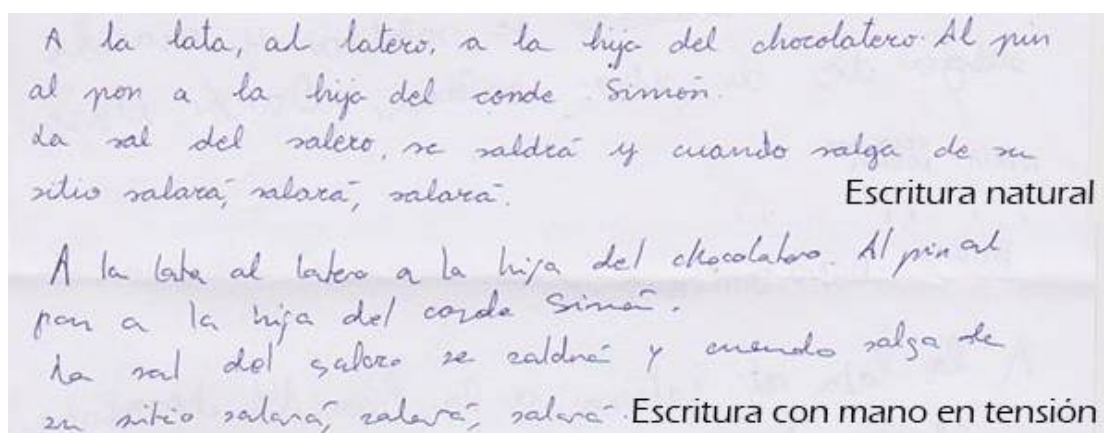 A la lata, al latero, a la hija del chocolatero. Al pin
al pon a la hija del conde Simón.
La sal del salero, se saldrá y cuando salga de su
sitio salará, salará, salará.
Escritura natural
A la lata al latero a la hija del chocolatero. Al pin al
pon a la hija del conde Simón.
La sal del salero se saldrá y cuando salga de
su sitio salará, salará, salará.
Escritura con mano en tensión